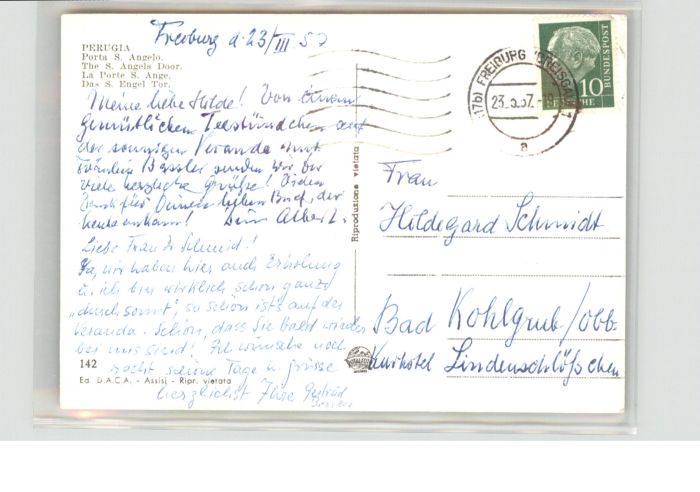 Freiburg d. 23/III 57
PERUGIA
Porta S. Angelo.
The S. Angels Door.
La Porte S. Ange.
Das S. Engel Tor.
Meine liebe Hilde! Von einem
gemütlichen Teestündchen auf
der sonnigen Veranda mit
Fräulein Bessler senden wir Dir
viele herzliche Grüße! Vielen
Dank für Deinen lieben Brief, der
heute ankam! Dein Albert.
Liebe Frau Schmid!
Ja, wir haben hier auch Erholung
u. ich bin wirklich schon ganz
"durchsonnt", so schön ist's auf der
Veranda. Schön, dass Sie bald wieder
bei uns sind! Ich wünsche noch
recht schöne Tage u. grüsse
herzlichst Ihre Gertrud
142
Ed. D.A.C.A. - Assisi - Ripr. vietata
Riproduzione vietata
(17b) FREIBURG (BREISGAU) 1
23.3.57.
a
10
DEUTSCHE
BUNDESPOST
Frau
Hildegard Schmidt
Bad Kohlgrub/Obb.
Kurhotel Lindenschlößchen